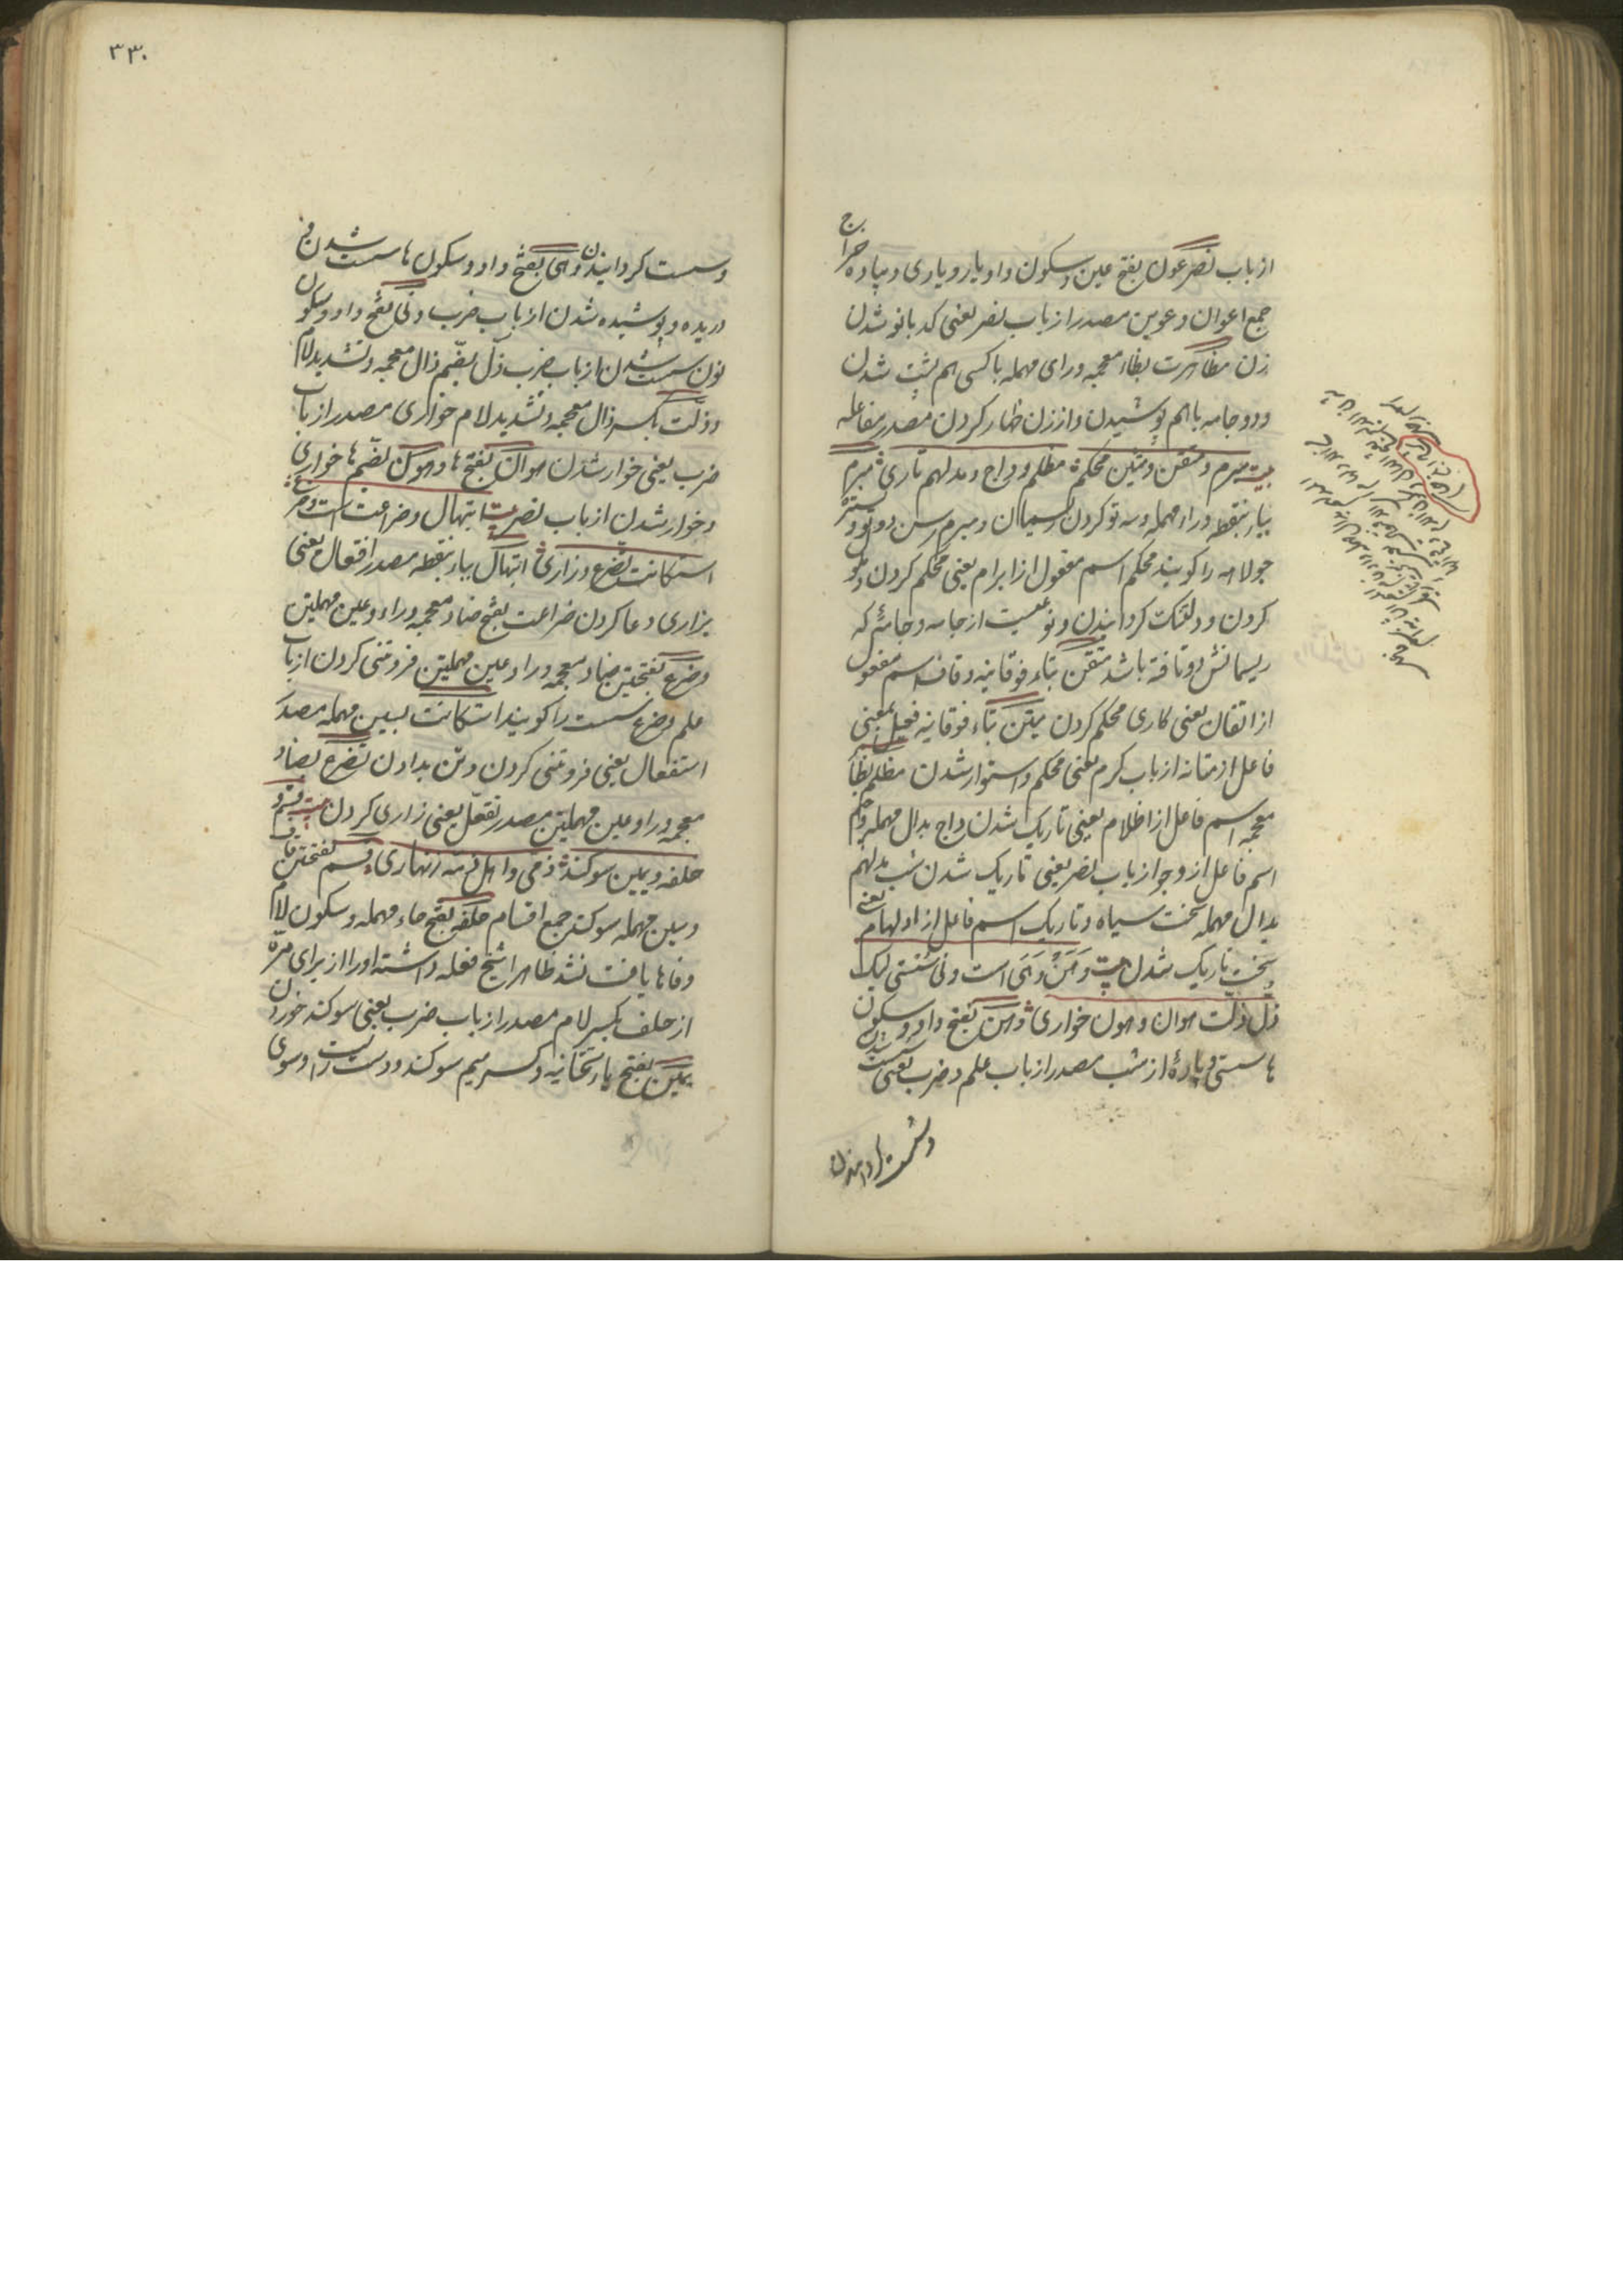 از باب نصر عون بفتح عین و سکون واو یار و یاری و پیاده خراج
جمع اعوان و عوین مصدر از باب نصر یعنی کدبانو شدن
زن مظاهرت بظاء معجمه و رای مهمله با کسی هم پشت شدن
و دو جامه با هم پوشیدن و از زن ظهار کردن مصدر مفاعله
بیت مبرم و متقن و متین محکم مظلم و داج و مدلهم تاری ش مبرم
بباء بنقطه و راء مهمله و سه تو کردن ریسمان و مبرم رسن دوتو و
جولاهه را کویند محکم اسم مفعول از ابرام یعنی محکم کردن و دوتو
کردن و دلتنک کردانیدن و نوعیست از جامه و جامهٔ که
ریسمانش دوتافته باشد متقن بتاء فوقانیه و قاف اسم مفعول
از اتقان یعنی کاری محکم کردن متین بتاء فوقانیه فعیل بمعنی
فاعل از متانه از باب کرم یعنی محکم و استوار شدن مظلم بظاء
معجمه اسم فاعل از اظلام یعنی تاریک شدن داج بدال مهمله و جیم
اسم فاعل از دجو از باب نصر یعنی تاریک شدن شب مدلهم
بدال مهمله سخت سیاه و تاریک اسم فاعل از ادلهمام یعنی
سخت تاریک شدن بیت وَهَن وَهَی است و نی سستی لیک
ذل ذلت هوان و هون خواری ش وهن بفتح واو و سکون
ها سستی و پارهٔ از شب مصدر از باب علم و ضرب یعنی سست شدن
و سست کردانیدن
۳۳۰
و سست کردانیدن وهی بفتح واو و سکون ها سست شدن و
دریده و پوشیده شدن از باب ضرب ونی بفتح واو و سکون
نون سست شدن از باب ضرب ذل بضم ذال معجمه و تشدید لام
و ذلت بکسر ذال معجمه و تشدید لام خواری مصدر از باب
ضرب یعنی خوار شدن هوان بفتح ها و هون بضم ها خواری
و خوار شدن از باب نصر بیت ابتهال و ضراعت است و ضرع
استکانت تضرع و زاری ش ابتهال بباء بنقطه مصدر افتعال یعنی
بزاری دعا کردن ضراعت بفتح ضاد معجمه و راء و عین مهملتین
و ضرع بفتحتین ضاد معجمه و راء و عین مهملتین فروتنی کردن از باب
علم و ضرع سست را کویند استکانت بسین مهمله مصدر
استفعال یعنی فروتنی کردن و تن بدادن تضرع بضاد
معجمه و راء و عین مهملتین مصدر تفعل یعنی زاری کردن بیت قسم و
حلفه و یمین سوکند ش ذمی و اهل ذمه زنهاری قسم بفتحتین قاف
و سین مهمله سوکند جمع اقسام حلفه بفتح حاء مهمله و سکون لام
و فا ها یافت نشد ظاهرا شیخ فعله داشته او را از برای مرّه
از حلف بکسر لام مصدر از باب ضرب یعنی سوکند خوردن
یمین بفتح یاء تحتانیه و کسر میم سوکند و دست راست و سوی